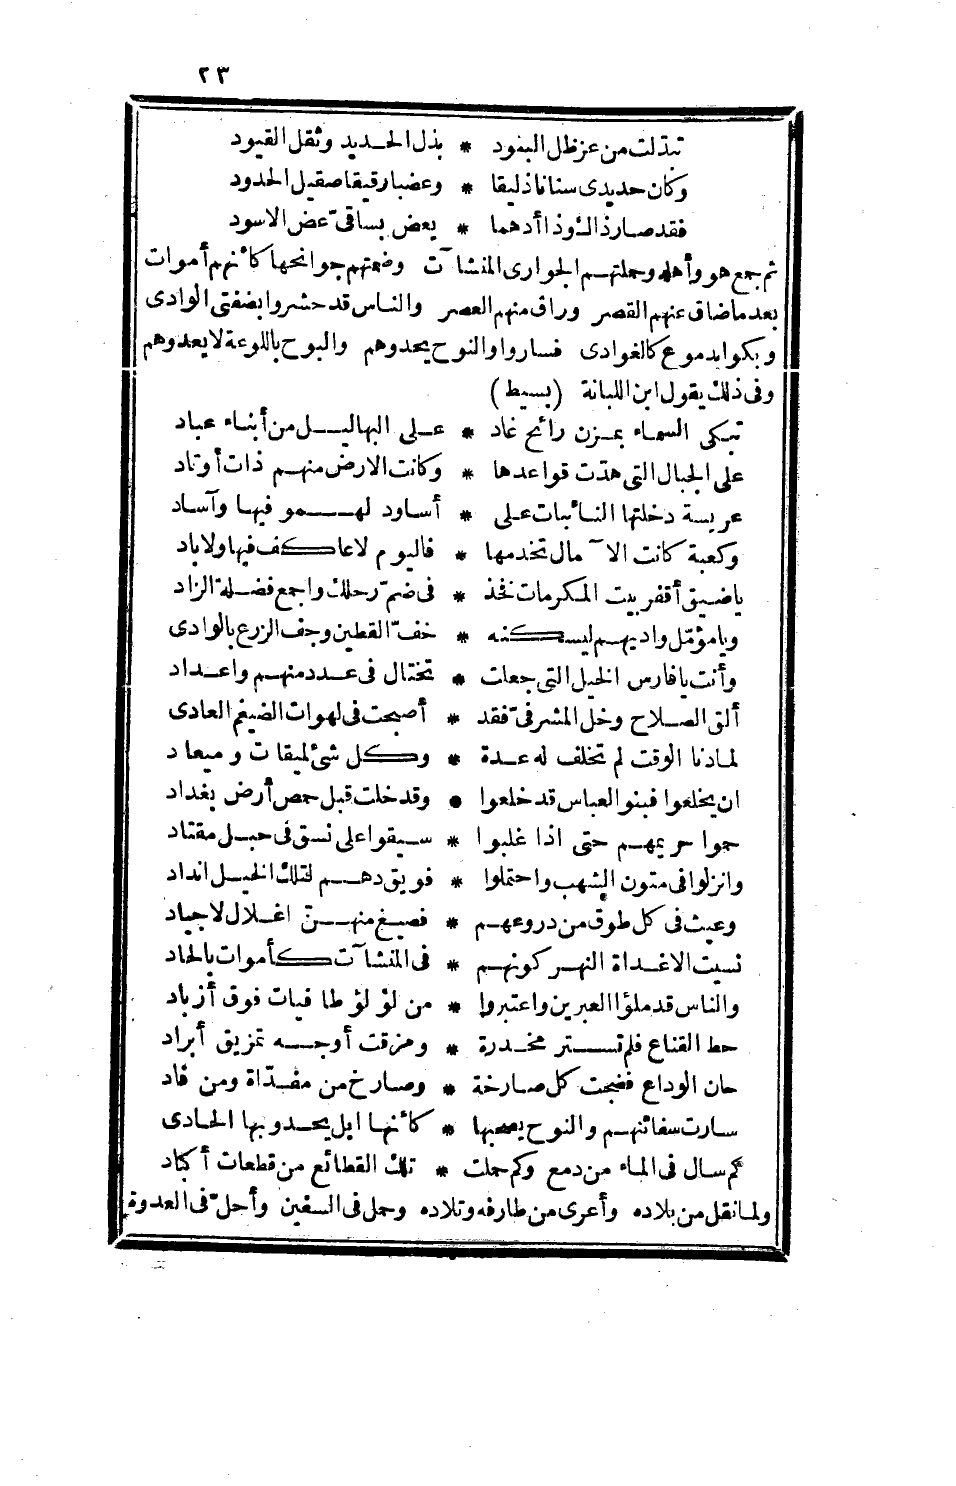 ٢٣
تبدلت من عز ظل البنود * بذل الحديد وثقل القيود
وكان حديدى سنانا ذليقا * وعضبا رقيقا صقيل الحدود
فقد صار ذاك وذا أدهما * يعض بساقى عض الاسود
ثم جمع هو وأهله وحملتهم الجوارى المنشآت وضمتهم جوانحها كأنهم أموات
بعد ما ضاق عنهم القصر وراق منهم العصر والناس قد حشروا بضفتى الوادى
وبكوا بدموع كالغوادى فساروا والنوح يحدوهم والبوح باللوعة لا يعدوهم
وفى ذلك يقول ابن اللبانة (بسيط)
تبكى السماء بمزن رائح غاد * على البهاليل من أبناء عباد
على الجبال التى هدّت قواعدها * وكانت الارض منهم ذات أوتاد
عريسة دخلتها النائبات على * أساود لهمو فيها وآساد
وكعبة كانت الآمال تخدمها * فاليوم لا عاكف فيها ولا باد
ياضيق أقفر بيت المكرمات نخذ * فى ضمّ رحلك واجمع فضلة الزاد
ويامؤمّل واديهم ليسكنه * خفّ القطين وجف الزرع بالوادى
وأنت يا فارس الخيل التى جعلت * تختال فى عدد منهم واعداد
ألق السلاح وخل المشرفىّ فقد * أصبحت فى لهوات الضيغم العادى
لما دنا الوقت لم تخلف له عدة * وكل شئ لميقات وميعاد
ان يخلعوا فبنو العباس قد خلعوا * وقد خلت قبل حمص أرض بغداد
حموا حريمهم حتى اذا غلبوا * سيقوا على نسق فى حبل مقتاد
وانزلوا فى متون الشهب واحتملوا * فويق دهم لتلك الخيل انداد
وعيث فى كل طوق من دروعهم * فصيغ منهنّ اغلال لاجياد
نسيت الاغداة النهر كونهم * فى المنشآت كأموات بالحاد
والناس قد ملؤا العبرين واعتبروا * من لؤلؤ طافيات فوق أزباد
حط القناع فلم تستر مخدرة * ومزقت أوجه تمزيق أبراد
حان الوداع فضجت كل صارخة * وصارخ من مفدّاة ومن فاد
سارت سفائنهم والنوح يصحبها * كأنها ابل يحدو بها الحادى
كم سال فى الماء من دمع وكم حملت * تلك القطائع من قطعات أكباد
ولما نقل من بلاده وأعرى من طارفه وتلاده وحمل فى السفين وأحلّ فى العدوة